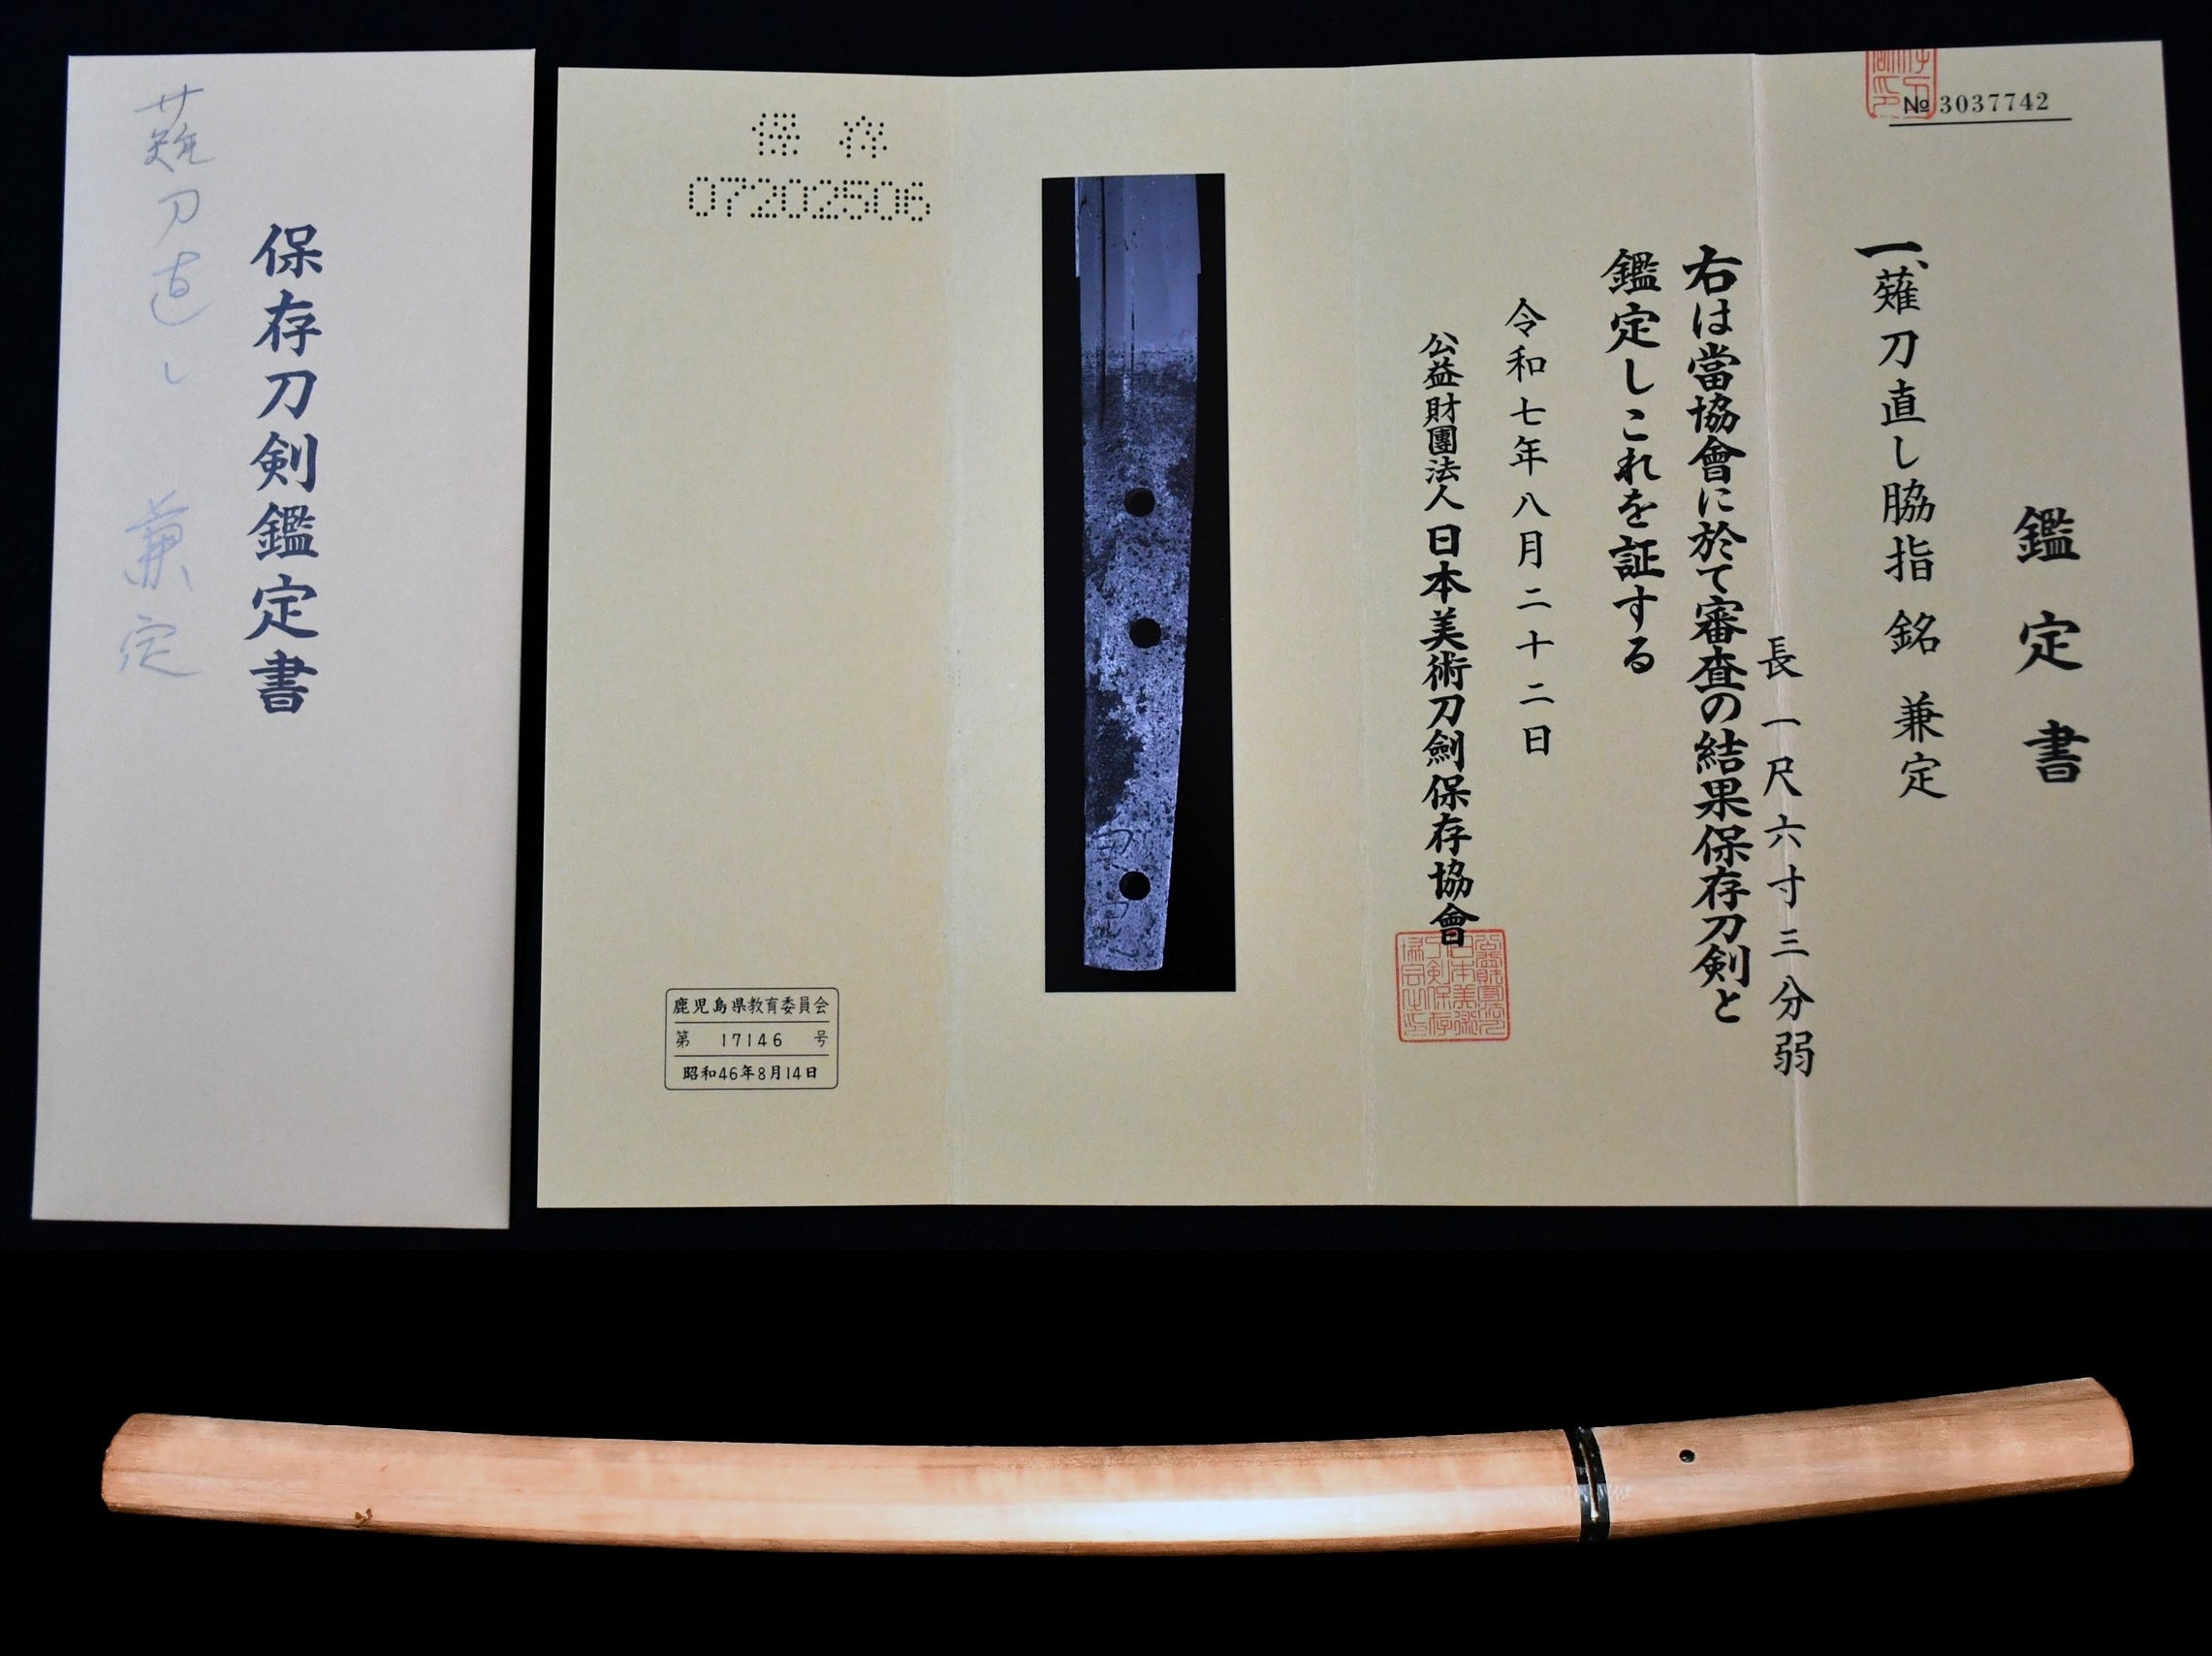 薙刀直し 兼定
保存刀剣鑑定書
№3037742
鑑定書
一、薙刀直し脇指 銘 兼定
長一尺六寸三分弱
右は當協會に於て審査の結果保存刀剣と
鑑定しこれを証する
令和七年八月二十二日
公益財團法人日本美術刀劍保存協會
保存
07202506
鹿児島県教育委員会
第 17146 号
昭和46年8月14日